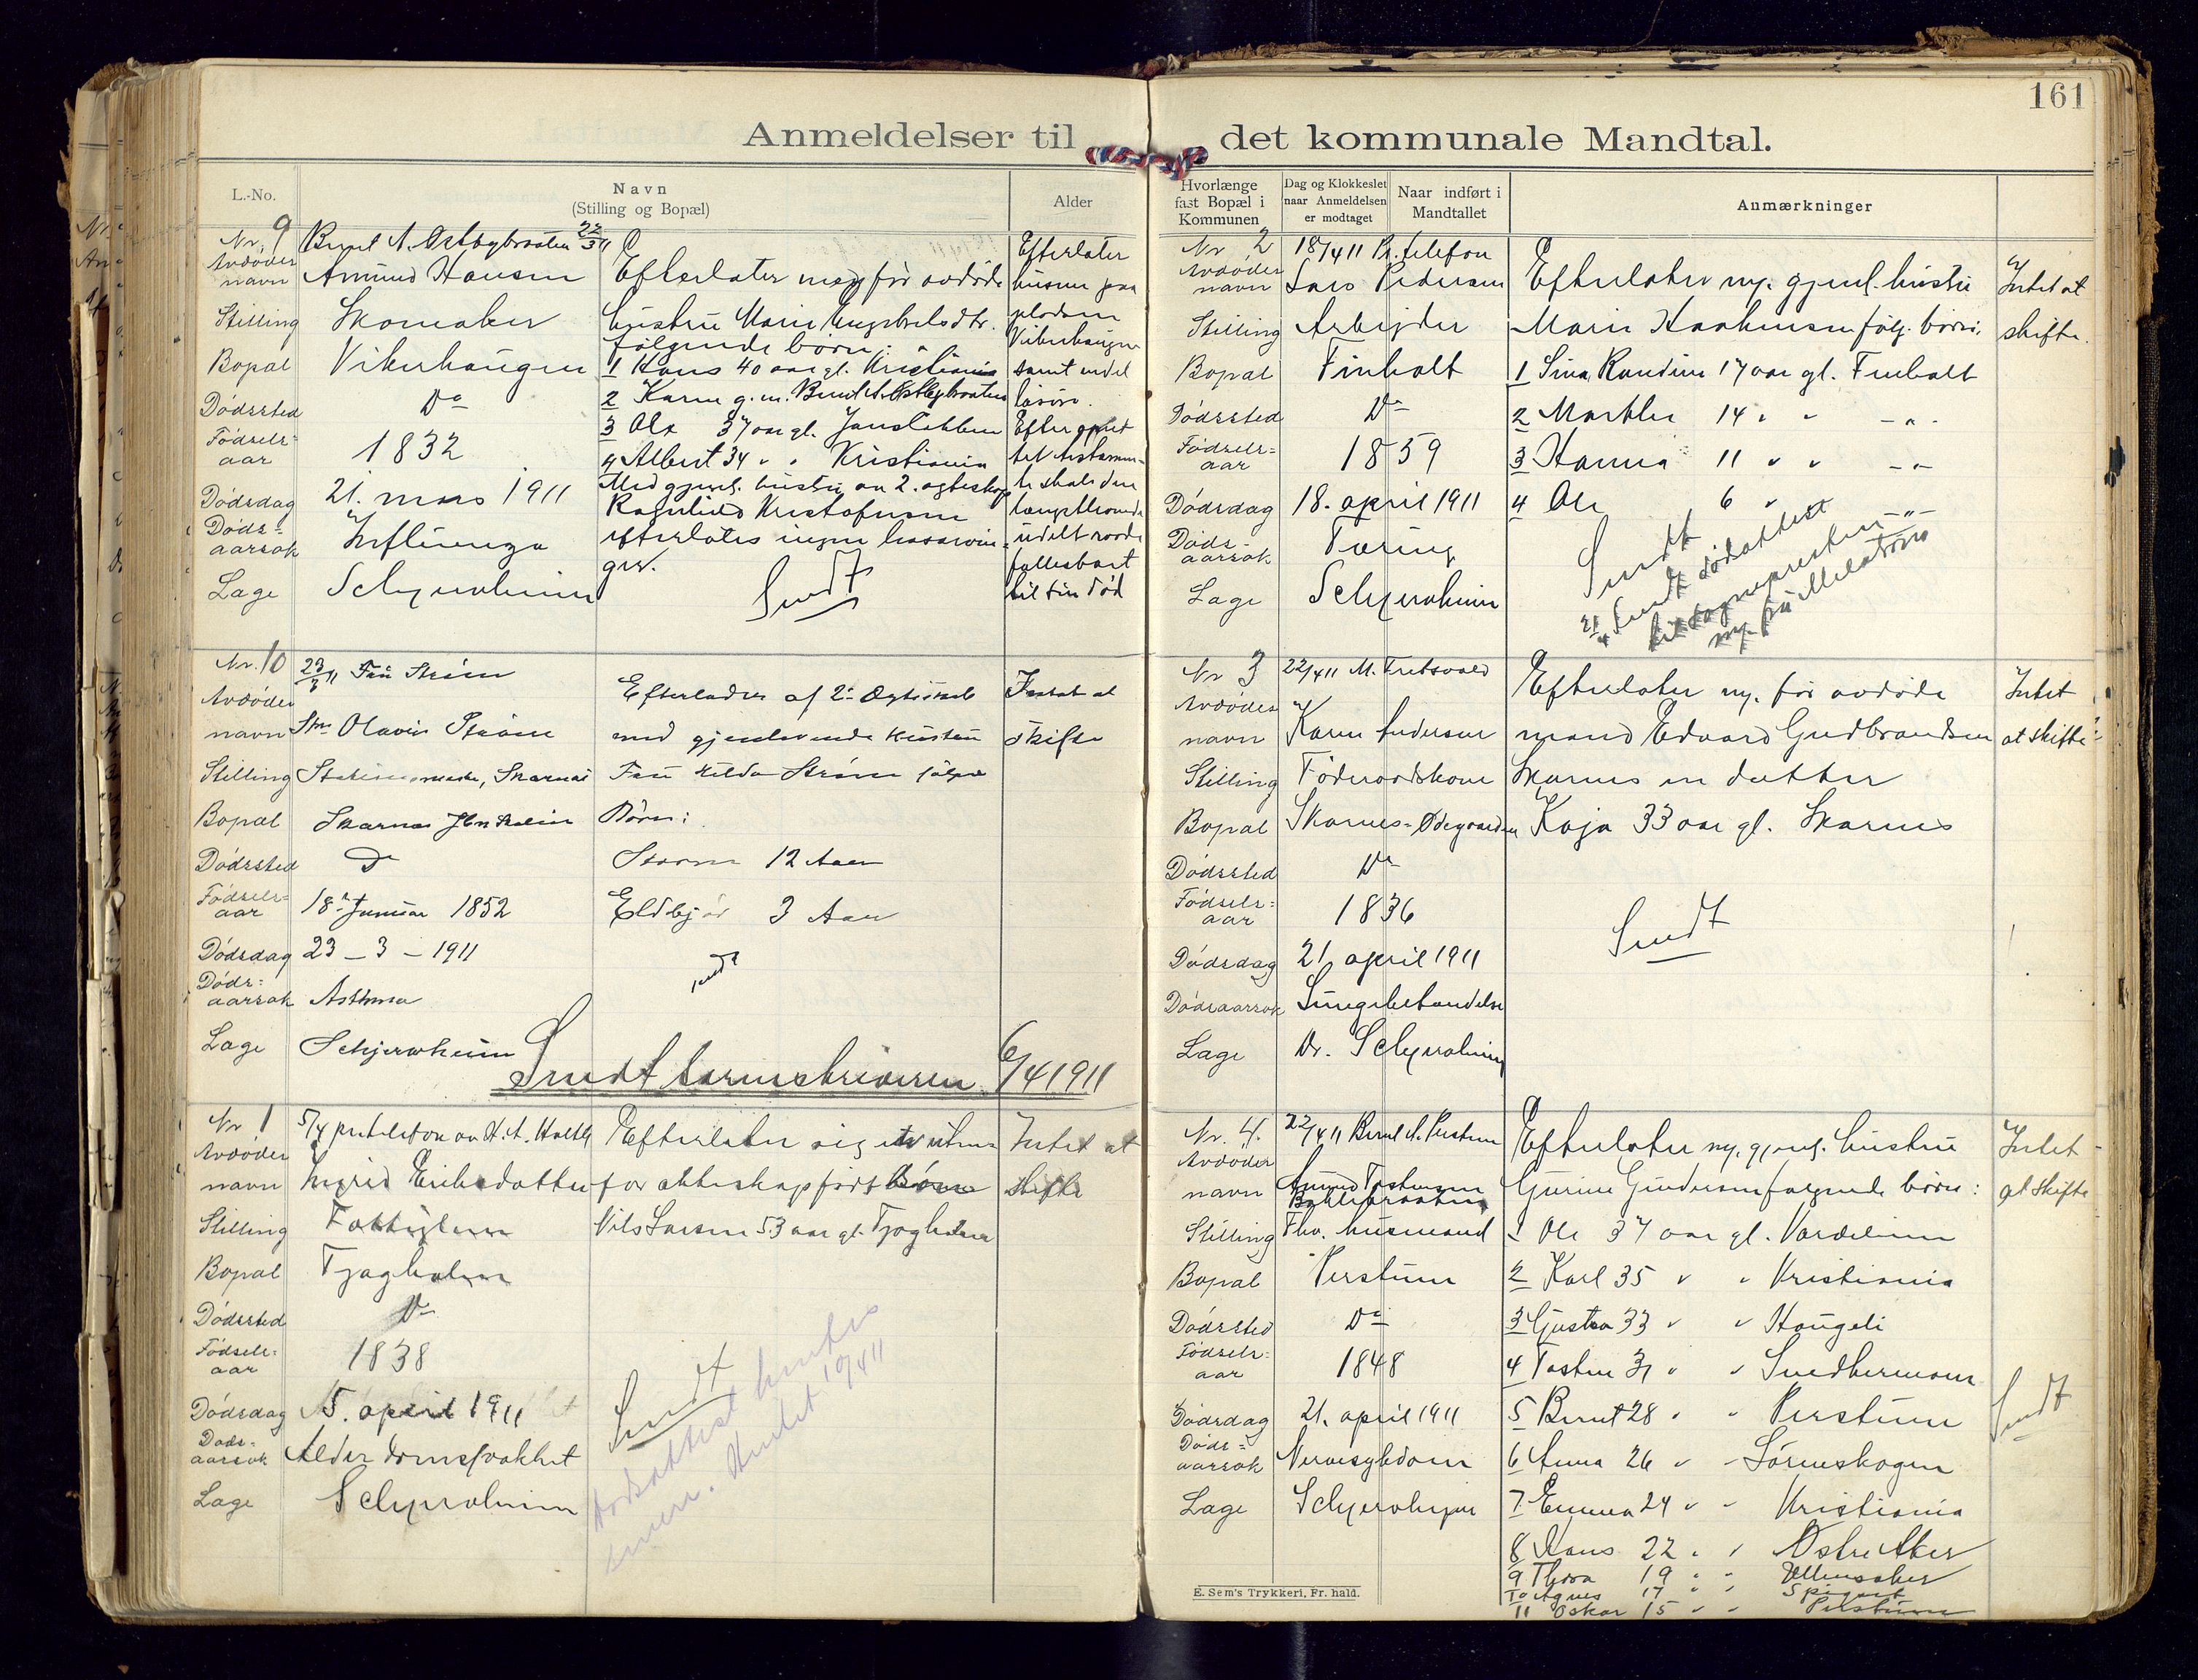 161
Anmeldelser til det kommunale Mandtal.
L.-No.
Navn
(Stilling og Bopæl)
Alder
Nr. 9
Bernt A. Østbybraaten 22/3 11
Avdødes navn Amund Hansen
Stilling Skomaker
Bopæl Vikerhaugen
Dødssted Do
Fødselsaar 1832
Dødsdag 21. mars 1911
Dødsaarsak Influenza
Læge Schjerveheim
Efterlater med før avdøde
hustru Marie Engebretsdtr.
følgende børn:
1 Hans 40 aar gl. Kristiania
2 Karen g. m. Bernt A. Østbybraaten
3 Ole 37 aar gl.
4 Albert 34 " " Kristiania
Med gjenl. hustru av 2. egteskap
Ragnhild Kristofersen
efterlates ingen livsarvinger.
Sendt
Efterlater
husene paa
pladsen
Vikerhaugen
samt endel
løsøre.
Efter oprettet
testamente
skal den
længstlevende
i uskiftet
til sin død
Nr. 10
23/3 11 Fru Strøm
Avdødes navn Olavus Strøm
Stilling Stationsmester, Skarnes
Bopæl Skarnes Jernb.
Dødssted Do
Fødselsaar 18. Januar 1852
Dødsdag 23 – 3 – 1911
Dødsaarsak Asthma
Læge Schjerveheim
Efterlader af 2. Ægteskab
med gjenlevende hustru
Fru Hilda Strøm følgende
Børn:
12 Aar
Eldbjør 3 Aar
Sendt
Intet at
skifte
Sendt sorenskriveren 6/4 1911
Nr 1
5/4 pr telefon av H. A. Holth
Avdødes navn Ingrid Eriksdatter
Stilling Fattiglem
Bopæl Tjagholen
Dødssted Do
Fødselsaar 1838
Dødsdag 5. april 1911
Dødsaarsak Alderdomssvakhet
Læge Schjerveheim
Efterlater sig et uten
for ekteskap født Barn
Nils Larsen 53 aar gl. Tjagholen
Sendt
Dødsattest hentes
senere. Hentet 10/4 11
Intet at
skifte
Hvorlænge
fast Bopæl i
Kommunen
Dag og Klokkeslet
naar Anmeldelsen
er modtaget
Naar indført i
Mandtallet
Anmærkninger
Nr 2
18/4 11 Pr. telefon
Avdødes navn Lars Pedersen
Stilling Arbeider
Bopæl Finholt
Dødssted Do
Fødselsaar 1859
Dødsdag 18. april 1911
Dødsaarsak Tæring
Læge Schjerveheim
Efterlater m. gjenl. hustru
Marie Haakensen følg. børn:
1 Sina Randine 17 aar gl. Finholt
2 Marthe 14 " " – " –
3 Hanna 11 " " – " –
4 Ole 6 " – " –
Sendt
21/4 sendt dødsattest
til sognepresten
Intet at
skifte.
Nr 3
22/4 11 M. Fretsvold
Avdødes navn Karen Andersen
Stilling Føderaadskone
Bopæl Skarnes-Ødegaarden
Dødssted Do
Fødselsaar 1836
Dødsdag 21. april 1911
Dødsaarsak Lungebetændelse
Læge Dr. Schjerveheim
Efterlater m. før avdøde
mand Edvard Gudbrandsen
Skarnes en datter
Kaja 33 aar gl. Skarnes
Sendt
Intet
at skifte
Nr. 4.
22/4 11 Bernt A. Perstun
Avdødes navn Amund Tostensen
Stilling Fhv. husmand
Bopæl Perstun
Dødssted Do
Fødselsaar 1848
Dødsdag 21. april 1911
Dødsaarsak Nervesygdom
Læge Schjerveheim
Efterlater m. gjenl. hustru
Gurine Gundersen følgende børn:
1 Ole 37 aar gl.
2 Karl 35 " " Kristiania
3 Gustav 33 " " Haugli
4 Tosten 31 " "
5 Bernt 28 " " Perstun
6 Anna 26 " " Lørenskogen
7 Emma 24 " " Kristiania
8 Hans 22 " " Østre Aker
9 Thora 19 " " Ullensaker
10 Agnes 17 " "
11 Oskar 15 " " Perstun
Sendt
Intet
at skifte
E. Sem's Trykkeri, Fr. hald.